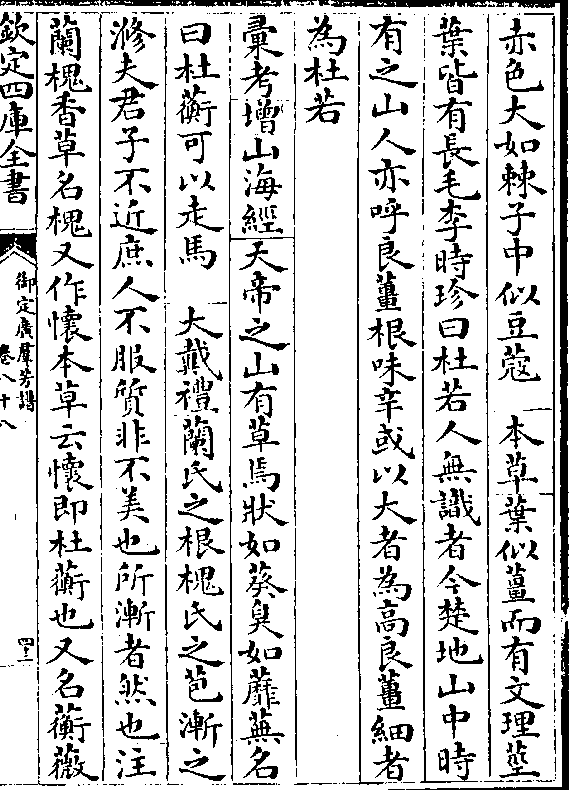 赤色大如棘子中似豆蔻　本草葉似薑而有文理莖
葉皆有長毛李時珍曰杜若人無識者今楚地山中時
有之山人亦呼良薑根味辛或以大者為高良薑細者
為杜若
彚考增山海經天帝之山有草焉狀如葵臭如蘼蕪名
曰杜蘅可以走馬　大戴禮蘭氏之根槐氏之苞漸之
滫夫君子不近庶人不服質非不美也所漸者然也注
蘭槐香草名槐又作懷本草云懷即杜蘅也又名蘅薇
欽定四庫全書
御定廣羣芳譜
卷八十八
四十二